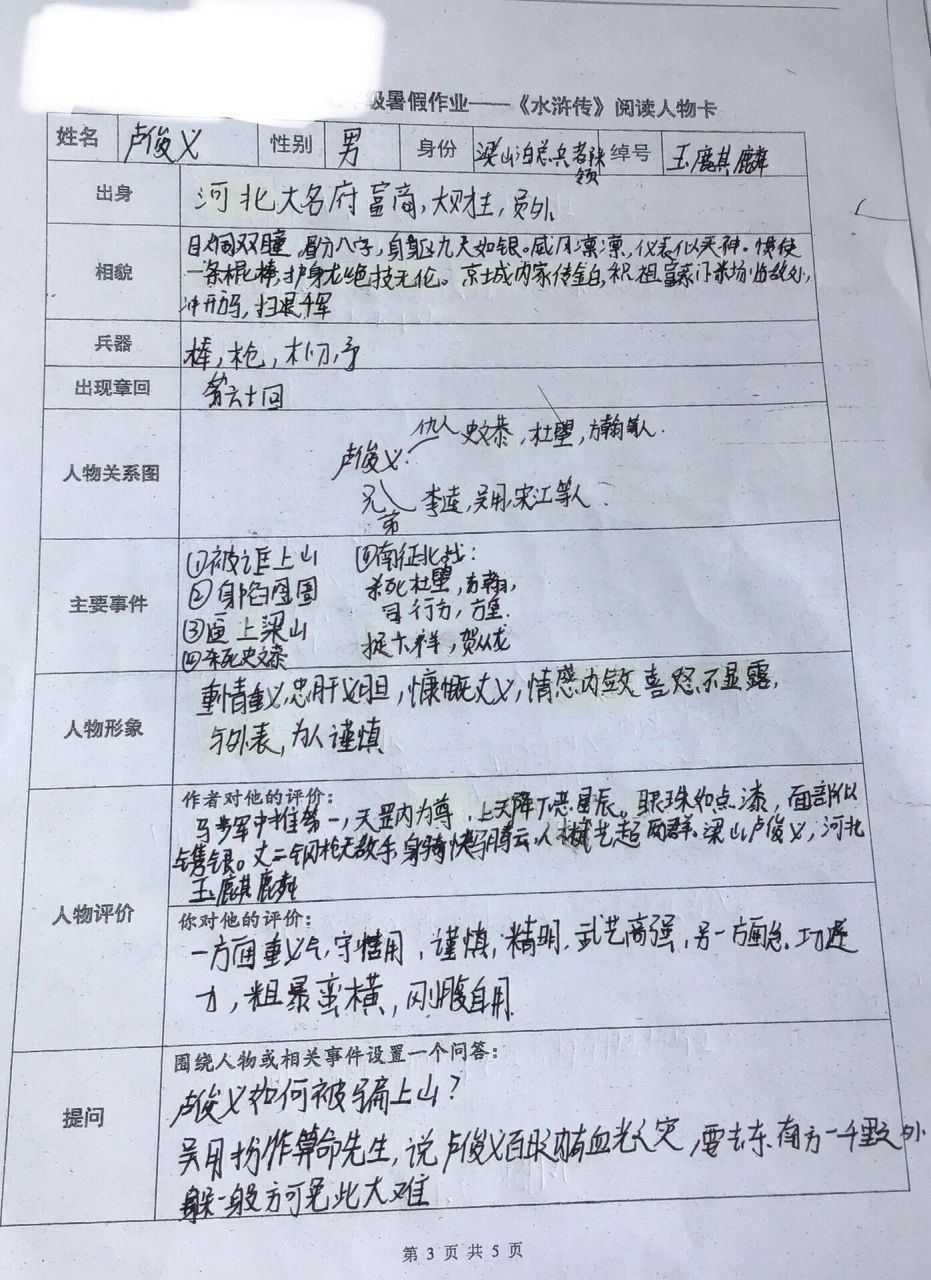 级暑假作业——《水浒传》阅读人物卡
姓名 卢俊义 性别 男 身份 梁山泊总兵都头领 绰号 玉麒麟
出身 河北大名府富商,大财主,员外
相貌 目炯双瞳,眉分八字,身躯九尺如银。威风凛凛,仪表似天神。惯使
一条棍棒,护身龙绝技无伦。京城内家传清白,积祖富豪门 临敌处,
冲开万马,扫退千军
兵器 棒,枪,朴刀,矛
出现章回 第六十回
仇人 史文恭,杜壆,方翰等人.
人物关系图 卢俊义
兄弟 李逵,吴用,宋江等人
主要事件
①被诓上山
②身陷囹圄
③再上梁山
④杀死史文恭
⑤南征北战:
杀死杜壆,方翰,
司行方,方垕.
捉 祥,贺从龙
人物形象
重情重义,忠肝义胆,慷慨丈义,情感内敛 喜怒不显露,
与外表,为人谨慎
人物评价
作者对他的评价:
马步军中推第一,天罡内为尊,上天降下恶星辰。眼珠如点漆,面部似
镌银。丈二钢枪无敌手,身骑快马腾云,人材武艺超两群.梁山卢俊义,河北
玉麒麟
你对他的评价:
一方面重义气,守信用,谨慎,精明.武艺高强,另一方面急功近
力,粗暴蛮横,刚腹自用.
提问
围绕人物或相关事件设置一个问答:
卢俊义如何被骗上山?
吴用扮作算命先生,说卢俊义百日内有血光之灾,要去东南方一千里之外
躲一躲方可免此大难
第 3 页 共 5 页